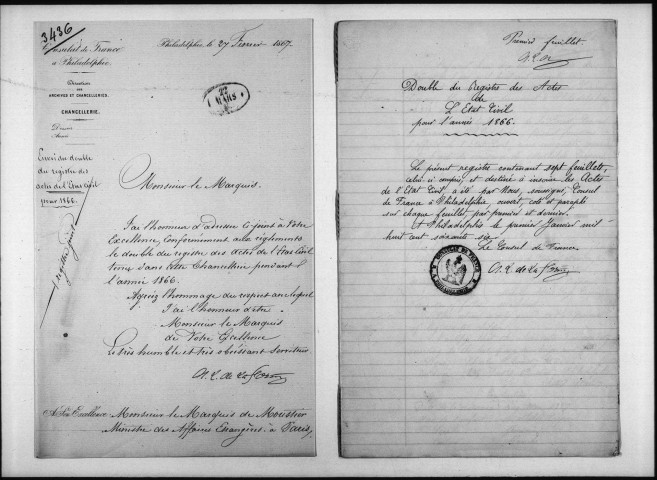 3436
Consulat de France
à Philadelphie.
Direction
DES
ARCHIVES ET CHANCELLERIES.
CHANCELLERIE.
Envoi du double
du registre des
actes de l'Etat Civil
pour 1866.
1 registre joint
Philadelphie, le 27 Fevrier 1867.
27
MARS
Monsieur le Marquis.
J'ai l'honneur d'adresser ci-joint à Votre
Excellence, conformément aux règlements
le double du registre des actes de l'Etat Civil
tenu dans cette Chancellerie pendant
l'année 1866.
Agréez l'hommage du respect avec lequel
J'ai l'honneur d'être.
Monsieur le Marquis
de Votre Excellence
Le très humble et très obéissant serviteur.
de La
A Son Excellence Monsieur le Marquis de Moustier
Ministre des Affaires Etrangères. à Paris,
Premier feuillet.
Double du Registre des Actes
de
L'Etat Civil
pour l'année 1866.
Le présent registre contenant sept feuillets,
celui-ci compris, et destiné à inscrire les Actes
de l'Etat Civil, a été par Nous, soussigné, Consul
de France à Philadelphie, ouvert, coté et paraphé
sur chaque feuillet, par premier et dernier.
A Philadelphie le premier Janvier mil
huit cent soixante six.
Le Consul de France,
de La